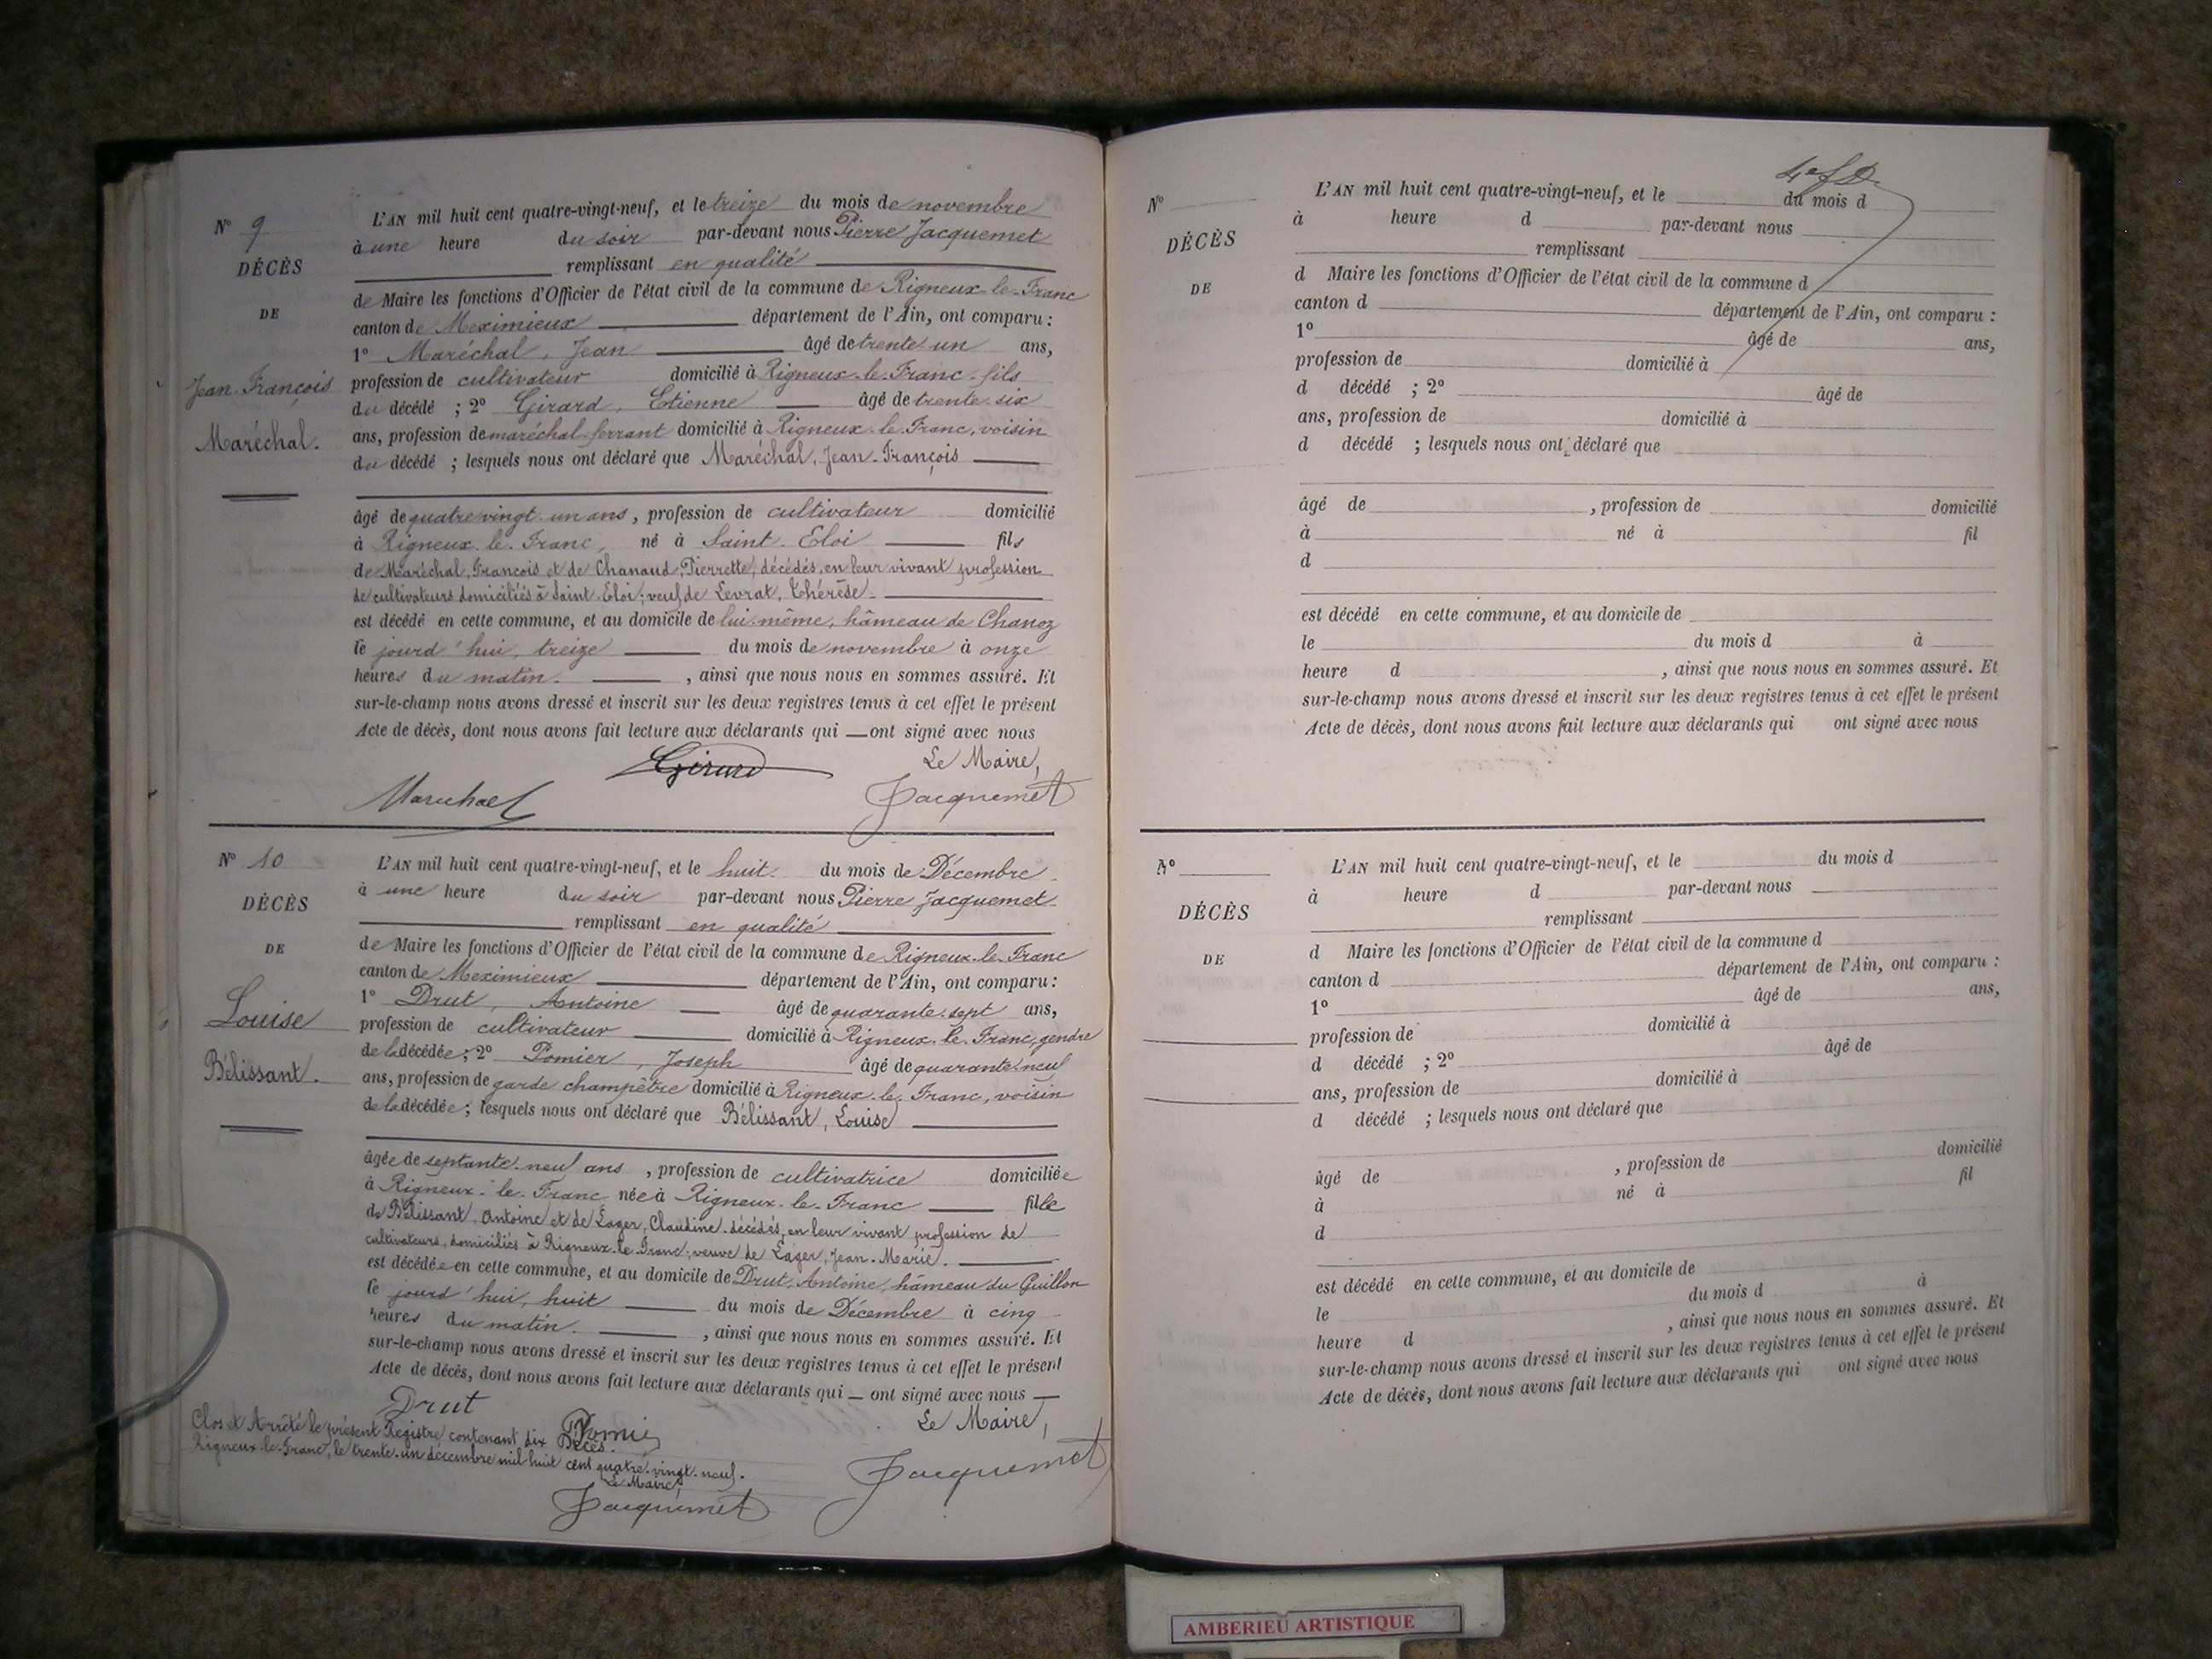 N° 9
DÉCÈS
DE
Jean François
Maréchal.
L'AN mil huit cent quatre-vingt-neuf, et le treize du mois de novembre
à une heure du soir par-devant nous Pierre Jacquemet
remplissant en qualité
de Maire les fonctions d'Officier de l'état civil de la commune de Rigneux-le-Franc
canton de Meximieux département de l'Ain, ont comparu :
1° Maréchal, Jean âgé de trente-un ans,
profession de cultivateur domicilié à Rigneux-le-Franc fils
du décédé ; 2° Girard, Etienne âgé de trente-six
ans, profession de maréchal-ferrant domicilié à Rigneux-le-Franc, voisin
du décédé ; lesquels nous ont déclaré que Maréchal, Jean-François
âgé de quatre-vingt-un ans, profession de cultivateur domicilié
à Rigneux-le-Franc, né à Saint-Eloi fils
de Maréchal, François et de Chanaud, Pierrette, décédés, en leur vivant profession
de cultivateurs domiciliés à Saint-Eloi ; veuf de Levrat, Thérèse
est décédé en cette commune, et au domicile de lui-même, hâmeau de Chanoz
le jourd'hui, treize du mois de novembre à onze
heures du matin. , ainsi que nous nous en sommes assuré. Et
sur-le-champ nous avons dressé et inscrit sur les deux registres tenus à cet effet le présent
Acte de décès, dont nous avons fait lecture aux déclarants qui ont signé avec nous
Le Maire,
Girard
Marechal
Jacquemet
N° 10
DÉCÈS
DE
Louise
Bélissant.
L'AN mil huit cent quatre-vingt-neuf, et le huit du mois de Décembre
à une heure du soir par-devant nous Pierre Jacquemet
remplissant en qualité
de Maire les fonctions d'Officier de l'état civil de la commune de Rigneux-le-Franc
canton de Meximieux département de l'Ain, ont comparu :
1° Drut, Antoine âgé de quarante-sept ans,
profession de cultivateur domicilié à Rigneux-le-Franc, gendre
de la décédée ; 2° Pomier, Joseph âgé de quarante-neuf
ans, profession de garde champêtre domicilié à Rigneux-le-Franc, voisin
de la décédée ; lesquels nous ont déclaré que Bélissant, Louise
âgée de septante-neuf ans , profession de cultivatrice domiciliée
à Rigneux-le-Franc née à Rigneux-le-Franc fille
de Bélissant Antoine et de Lager, Claudine décédés, en leur vivant profession de
cultivateurs, domiciliés à Rigneux-le-Franc ; veuve de Lager, Jean-Marie.
est décédée en cette commune, et au domicile de Drut, Antoine, hâmeau du Guillon
le jourd'hui, huit du mois de Décembre à cinq
heures du matin. , ainsi que nous nous en sommes assuré. Et
sur-le-champ nous avons dressé et inscrit sur les deux registres tenus à cet effet le présent
Acte de décès, dont nous avons fait lecture aux déclarants qui ont signé avec nous
Drut
Pomier
Le Maire,
Jacquemet
Clos et Arrêté le présent Registre contenant dix Décès.
Rigneux-le-Franc, le trente-un décembre mil huit cent quatre-vingt-neuf.
Le Maire,
Jacquemet
N°
DÉCÈS
DE
L'AN mil huit cent quatre-vingt-neuf, et le du mois d
à heure d par-devant nous
remplissant
d Maire les fonctions d'Officier de l'état civil de la commune d
canton d département de l'Ain, ont comparu :
1° âgé de ans,
profession de domicilié à
d décédé ; 2° âgé de
ans, profession de domicilié à
d décédé ; lesquels nous ont déclaré que
âgé de , profession de domicilié
à né à fil
d
est décédé en cette commune, et au domicile de
le du mois d à
heure d , ainsi que nous nous en sommes assuré. Et
sur-le-champ nous avons dressé et inscrit sur les deux registres tenus à cet effet le présent
Acte de décès, dont nous avons fait lecture aux déclarants qui ont signé avec nous
N°
DÉCÈS
DE
L'AN mil huit cent quatre-vingt-neuf, et le du mois d
à heure d par-devant nous
remplissant
d Maire les fonctions d'Officier de l'état civil de la commune d
canton d département de l'Ain, ont comparu :
1° âgé de ans,
profession de domicilié à
d décédé ; 2° âgé de
ans, profession de domicilié à
d décédé ; lesquels nous ont déclaré que
âgé de , profession de domicilié
à né à fil
d
est décédé en cette commune, et au domicile de
le du mois d à
heure d , ainsi que nous nous en sommes assuré. Et
sur-le-champ nous avons dressé et inscrit sur les deux registres tenus à cet effet le présent
Acte de décès, dont nous avons fait lecture aux déclarants qui ont signé avec nous
AMBERIEU ARTISTIQUE